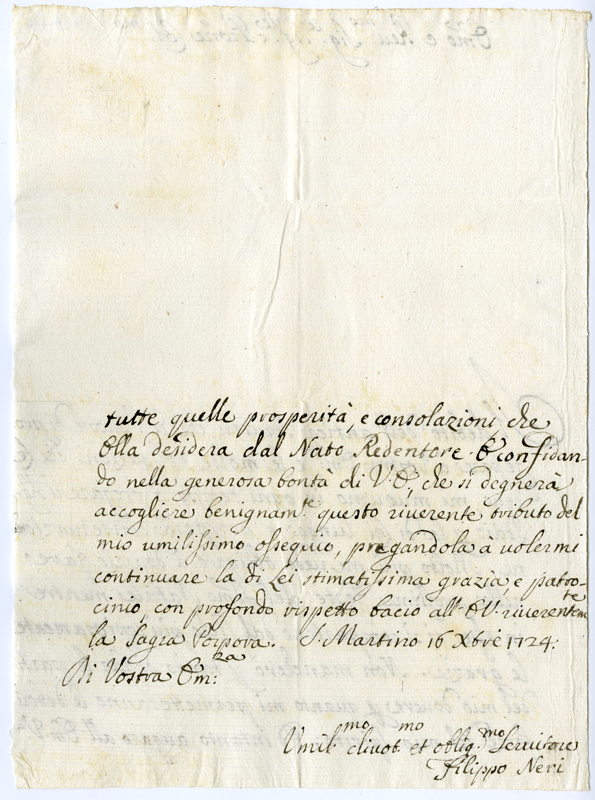 tutte quelle prosperità, e consolazioni, che
Ella desidera dal Nato Redentore. E confidan-
do nella generosa bontà di V. E., che si degnerà
accogliere benignam.te questo riverente tributo del
mio umilissimo ossequio, pregandola a volermi
continuare la di Lei stimatissima grazia, e patro-
cinio, con profondo rispetto bacio all' E V. riverentem.te
la Sagra Porpora. S. Martino 16 Xbre 1724:
Di Vostra Em:za
Umil.mo divot.mo et oblig.mo Servitore
Filippo Neri